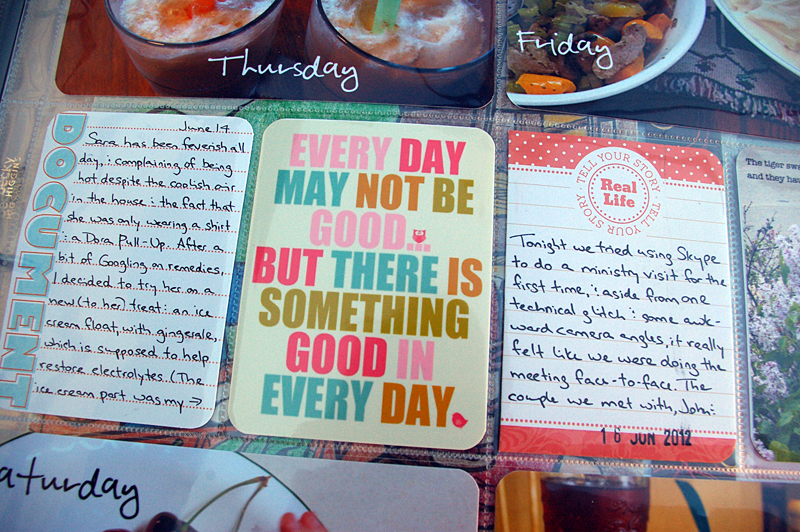 Thursday
Friday
DOCUMENT
June 14
Sara has been feverish all
day, : complaining of being
hot despite the coolish air
in the house : the fact that
she was only wearing a shirt
: a Dora Pull-Up. After a
bit of Googling on remedies,
I decided to try her on a
new (to her) treat: an ice
cream float, with gingerale,
which is supposed to help
restore electrolytes. (The
ice cream part was my →
EVERY DAY
MAY NOT BE
GOOD...
BUT THERE IS
SOMETHING
GOOD IN
EVERY DAY.
TELL YOUR STORY TELL YOUR STORY
Real
Life
Tonight we tried using Skype
to do a ministry visit for the
first time, : aside from one
technical glitch : some awk-
ward camera angles, it really
felt like we were doing the
meeting face-to-face. The
couple we met with, John :
16 JUN 2012
The tiger sw
and they ha
aturday